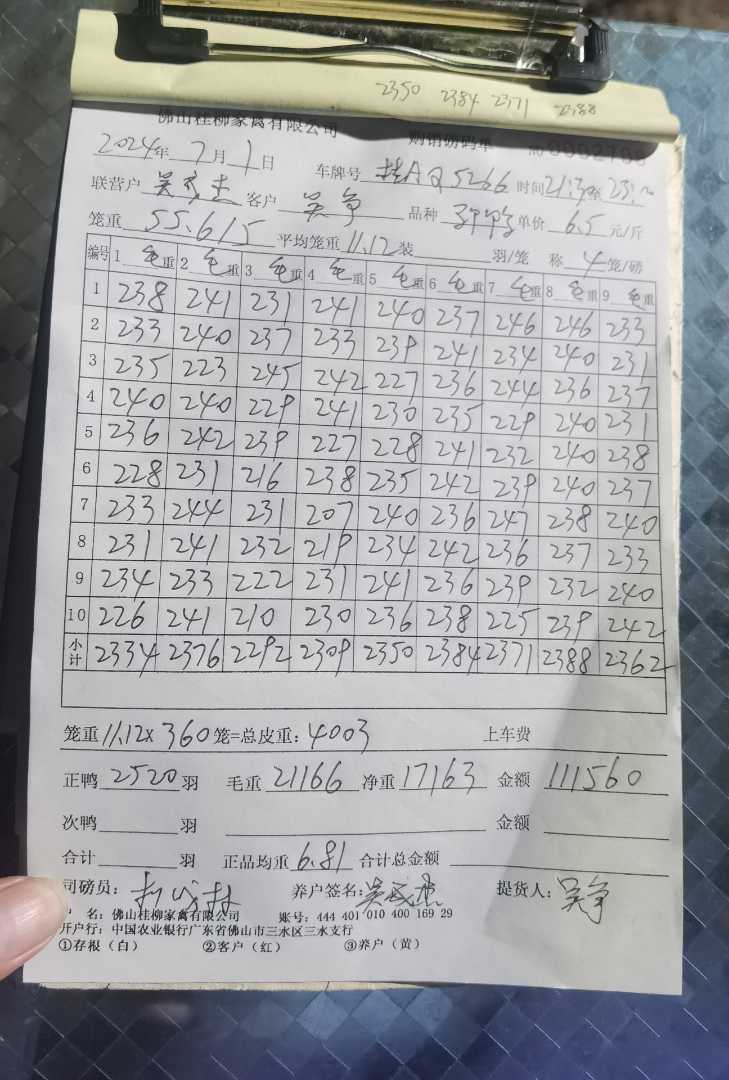 2350 2384 2371 2388
佛山桂柳家禽有限公司 购销磅码单
2024年 7月 1日 车牌号 桂AQ5266 时间
联营户 客户 吴争 品种 单价 6.5 元/斤
笼重 55.6/5 平均笼重 11.12 装 羽/笼 称 4 笼/磅
编号 1 毛重 2 毛重 3 毛重 4 毛重 5 毛重 6 毛重 7 毛重 8 毛重 9 毛重
1 238 241 231 241 240 237 246 246 233
2 233 240 237 233 239 241 234 240 231
3 235 223 245 242 227 236 244 236 237
4 240 240 229 241 230 235 229 240 231
5 236 242 239 227 228 241 232 240 238
6 228 231 216 238 235 242 239 240 237
7 233 244 231 207 240 236 247 238 240
8 231 241 232 219 234 242 236 237 233
9 234 233 222 231 241 236 239 232 240
10 226 241 210 230 236 238 225 239 242
小计 2334 2376 2292 2309 2350 2384 2371 2388 2362
笼重 11.12 x 360 笼=总皮重: 4003 上车费
正鸭 2520 羽 毛重 21166 净重 17163 金额 111560
次鸭 羽 金额
合计 羽 正品均重 6.81 合计总金额
司磅员: 养户签名: 提货人: 吴争
户 名: 佛山桂柳家禽有限公司 账号: 444 401 010 400 169 29
开户行: 中国农业银行广东省佛山市三水区三水支行
①存根(白) ②客户(红) ③养户(黄)